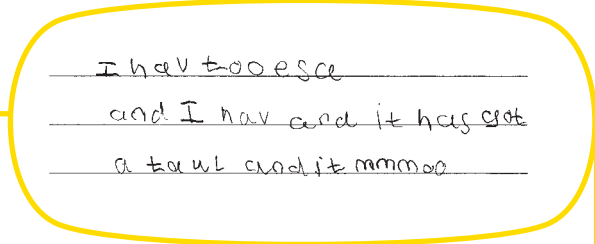 I hav too esa
and I hav and it has got
a taul and it mmmoo